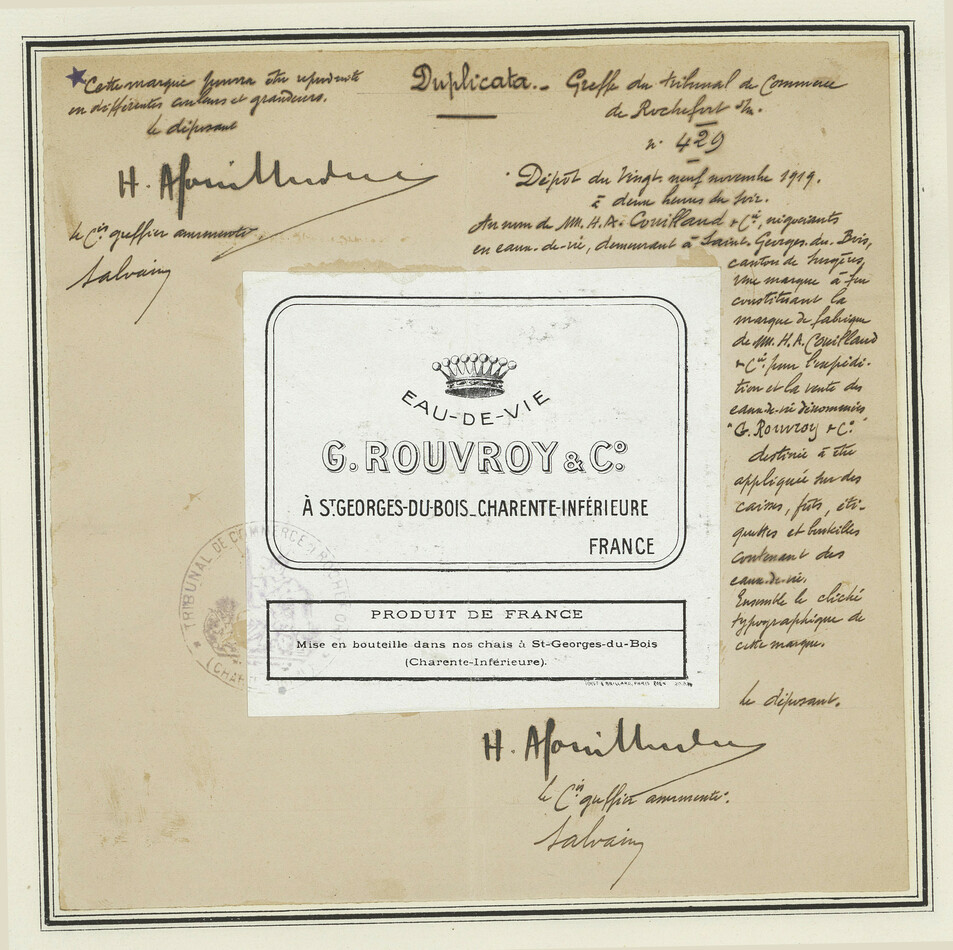 ★ Cette marque pourra être reproduite
en différentes couleurs et grandeurs.
le déposant
le Cis greffier assermenté.
Salvain
Duplicata.- Greffe du tribunal de Commerce
de Rochefort s/m.
n° 429
Dépôt du Vingt neuf novembre 1919.
à deux heures du soir.
Au nom de MM. H. A. Couilland & Cie, négociants
en eaux-de-vie, demeurant à Saint-Georges-du-Bois,
canton de Surgères,
une marque à feu
constituant la
marque de fabrique
de MM. H. A. Couilland
& Cie pour l'expédi-
tion et la vente des
eaux-de-vie dénommées
"G. Rouvroy & Co"
destinée à être
appliquée sur des
caisses, fûts, éti-
quettes et bouteilles
contenant des
eaux-de-vie.
Ensemble le cliché
typographique de
cette marque.
EAU-DE-VIE
G. ROUVROY & Co
À ST GEORGES-DU-BOIS_CHARENTE-INFÉRIEURE
FRANCE
PRODUIT DE FRANCE
Mise en bouteille dans nos chais à St-Georges-du-Bois
(Charente-Inférieure).
TRIBUNAL DE COMMERCE
le déposant.
le Cis greffier assermenté.
Salvain